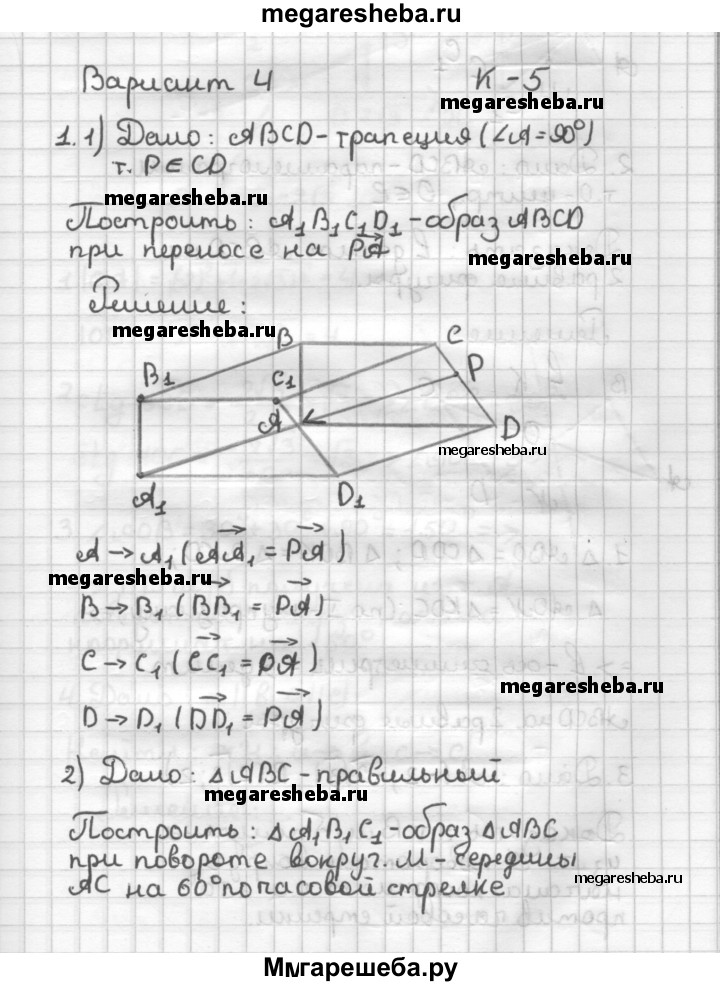 megaresheba.ru
Вариант 4 К-5
megaresheba.ru
1. 1) Дано: ABCD - трапеция (∠A = 90°)
т. P ∈ CD
megaresheba.ru
Построить: A₁B₁C₁D₁ - образ ABCD
при переносе на PA
megaresheba.ru
Решение:
megaresheba.ru
B C
B₁ C₁ P
A D
megaresheba.ru
A₁ D₁
A → A₁ (AA₁ = PA)
megaresheba.ru
B → B₁ (BB₁ = PA)
C → C₁ (CC₁ = PA)
megaresheba.ru
D → D₁ (DD₁ = PA)
2) Дано: △ABC - правильный
megaresheba.ru
Построить: △A₁B₁C₁ - образ △ABC
при повороте вокруг т. M - середины
megaresheba.ru
AC на 60° по часовой стрелке
Ммгарешеба.ру